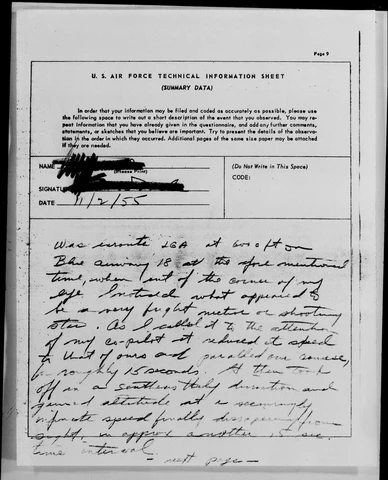 Page 9
U. S. AIR FORCE TECHNICAL INFORMATION SHEET
(SUMMARY DATA)
In order that your information may be filed and coded as accurately as possible, please use
the following space to write out a short description of the event that you observed. You may re-
peat information that you have already given in the questionnaire, and add any further comments,
statements, or sketches that you believe are important. Try to present the details of the observa-
tion in the order in which they occurred. Additional pages of the same size paper may be attached
if they are needed.
NAME
(Please Print)
(Do Not Write in This Space)
CODE:
SIGNATURE
DATE 11/2/55
Was enroute LGA at 6000 ft on
Blue airway 18 at the afore mentioned
time, when out of the corner of my
eye I noticed what appeared to
be a very bright meteor or shooting
star. As I called it to the attention
of my co-pilot it reduced it speed
to that of ours and paralled our course,
for roughly 15 seconds. It then took
off in a southeasterly direction and
gained altitude at a seemingly
infinate speed finally disappearing from
sight, in approx another 15 sec.
time interval.
- next page -